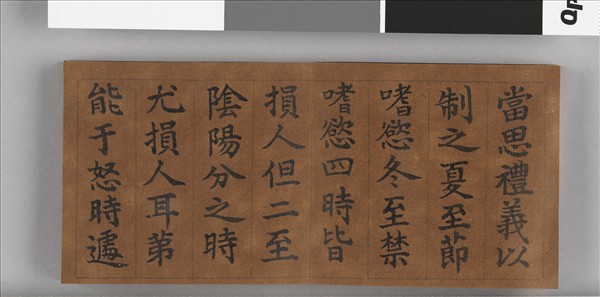 當思禮義以
制之夏至節
嗜慾冬至禁
嗜慾四時皆
損人但二至
陰陽分之時
尤損人耳苐
能于怒時遽